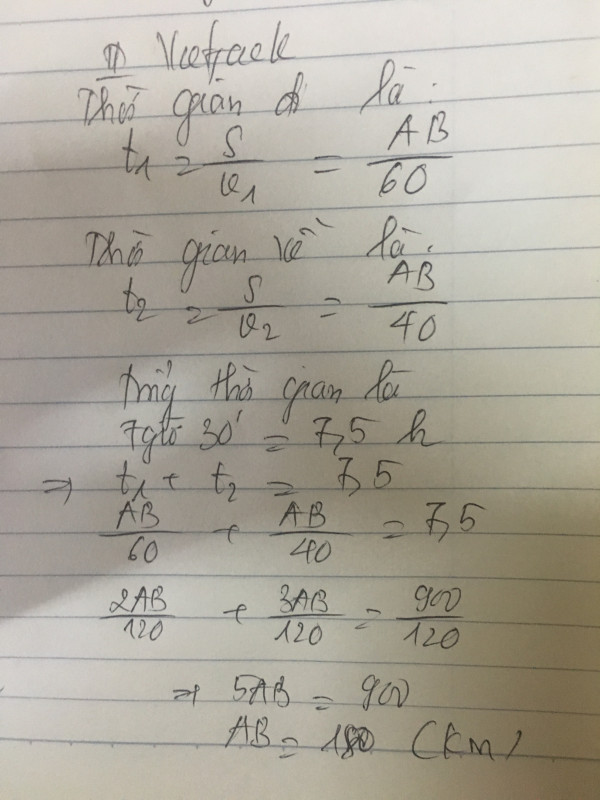 II Vietjack
Thời gian đi là:
t1 = S/v1 = AB/60
Thời gian về là:
t2 = S/v2 = AB/40
Tổng thời gian là
7 giờ 30' = 7,5 h
=> t1 + t2 = 7,5
AB/60 + AB/40 = 7,5
2AB/120 + 3AB/120 = 900/120
=> 5AB = 900
AB = 180 (km)